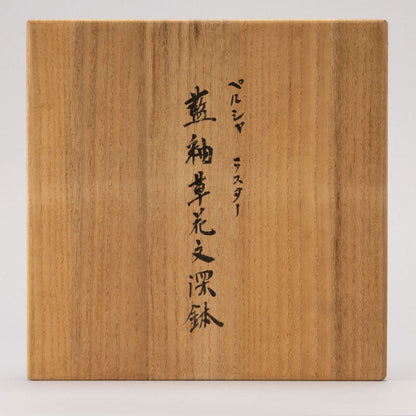 ペルシャ ラスター
藍釉草花文深鉢